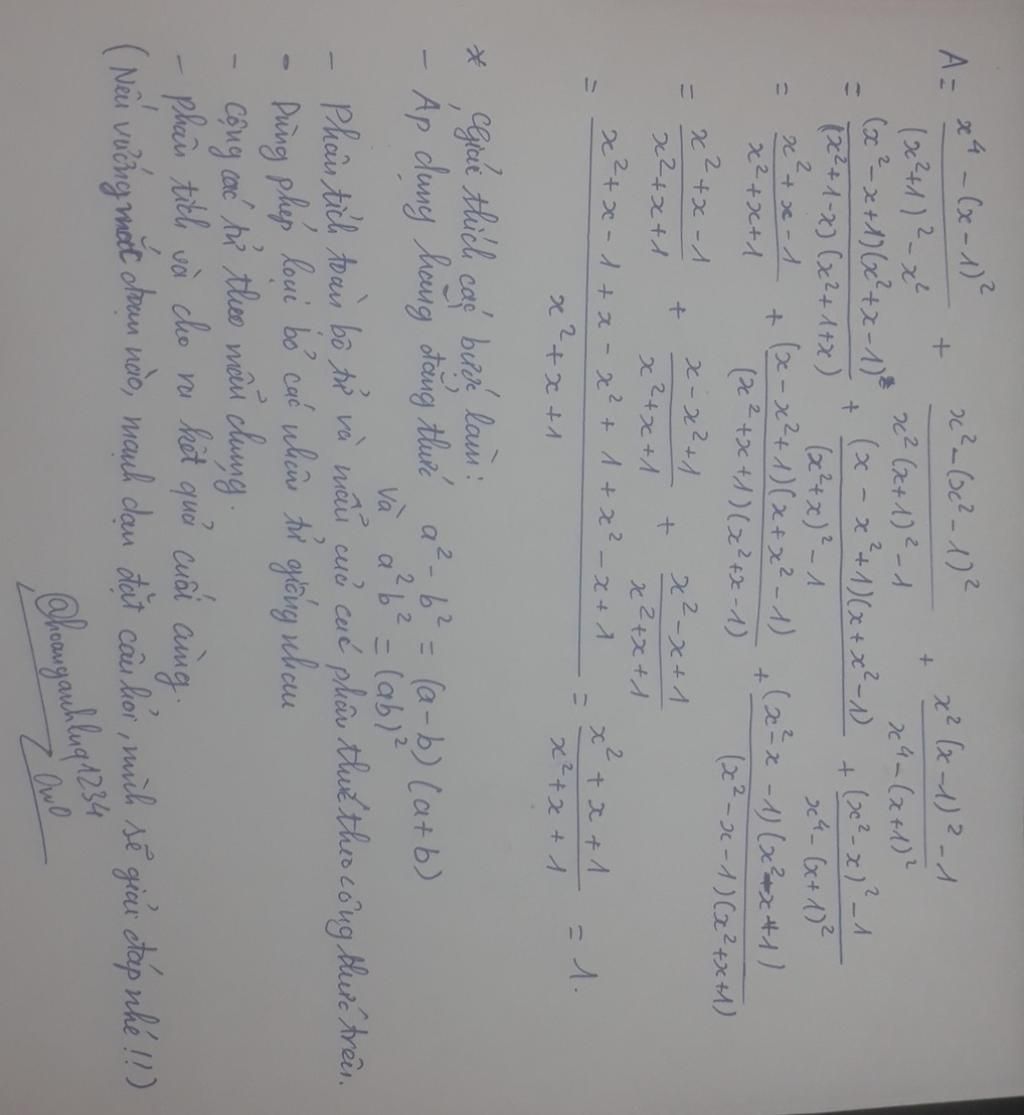 A = \frac{x^4 - (x-1)^2}{(x^2+1)^2 - x^2} + \frac{x^2 - (x^2-1)^2}{x^2(x+1)^2 - 1} + \frac{x^2(x-1)^2 - 1}{x^4 - (x+1)^2}
= \frac{(x^2-x+1)(x^2+x-1)}{(x^2+1-x)(x^2+1+x)} + \frac{(x-x^2+1)(x+x^2-1)}{(x^2+x)^2-1} + \frac{(x^2-x)^2-1}{x^4-(x+1)^2}
= \frac{x^2+x-1}{x^2+x+1} + \frac{(x-x^2+1)(x+x^2-1)}{(x^2+x+1)(x^2+x-1)} + \frac{(x^2-x-1)(x^2-x+1)}{(x^2-x-1)(x^2+x+1)}
= \frac{x^2+x-1}{x^2+x+1} + \frac{x-x^2+1}{x^2+x+1} + \frac{x^2-x+1}{x^2+x+1}
= \frac{x^2+x-1+x-x^2+1+x^2-x+1}{x^2+x+1} = \frac{x^2+x+1}{x^2+x+1} = 1.
* Giải thích các bước làm:
- Áp dụng hằng đẳng thức a^2 - b^2 = (a-b)(a+b)
và a^2b^2 = (ab)^2
- Phân tích toàn bộ tử và mẫu của các phân thức theo công thức trên.
• Dùng phép loại bỏ các nhân tử giống nhau
- Cộng các tử theo mẫu chung.
- phân tích và cho ra kết quả cuối cùng.
(Nếu vướng mắc đoạn nào, mạnh dạn đặt câu hỏi, mình sẽ giải đáp nhé!!)
@hoanganhluq1234